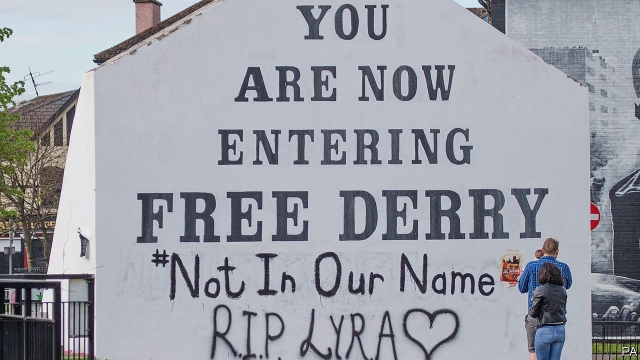 YOU
ARE NOW
ENTERING
FREE DERRY
#Not In Our Name
R.I.P. LYRA♡
PA